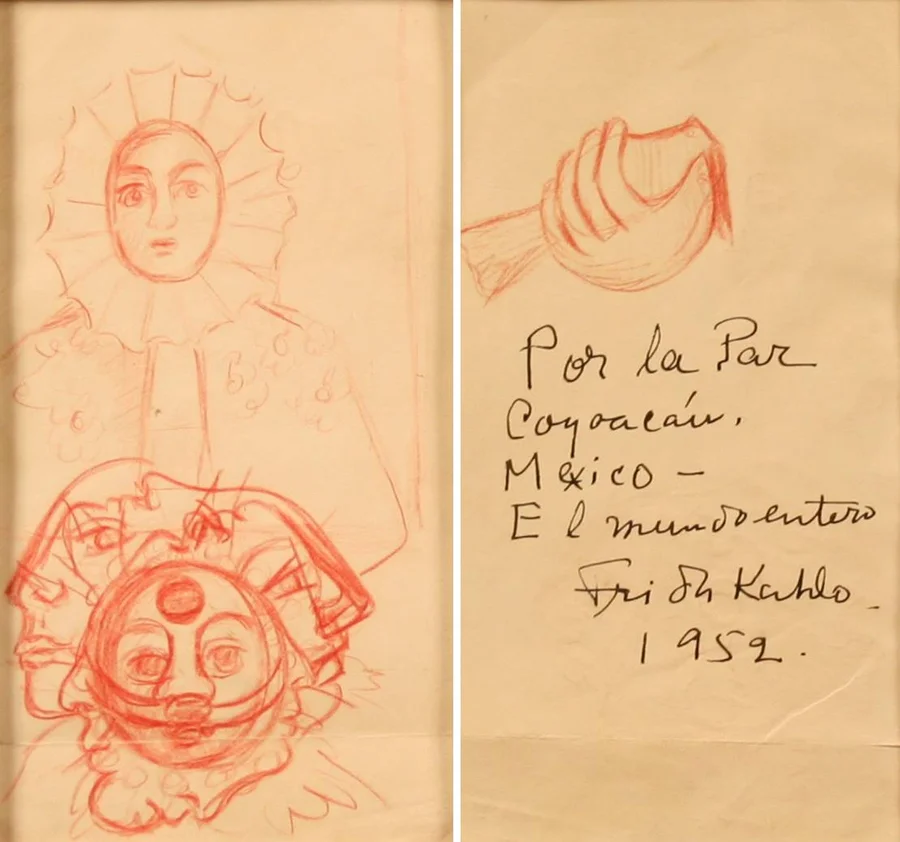 Por la Paz
Coyoacán.
México –
El mundo entero
Frida Kahlo.
1952.